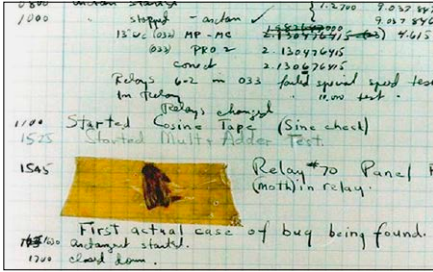 0800 antan started
1000 " stopped - antan ✓
1.2700 9.037 847
9.037 846
13"uc (032) MP - MC 2.130476415 4.615
(033) PRO 2 2.130476415
conect 2.130676415
Relays 6-2 in 033 failed special speed test
In Relay " 10,000 test .
Relays changed
1100 Started Cosine Tape (Sine check)
1525 Started Mult+Adder Test.
1545 Relay #70 Panel F
(moth) in relay.
First actual case of bug being found.
1630 antangent started.
1700 closed down.